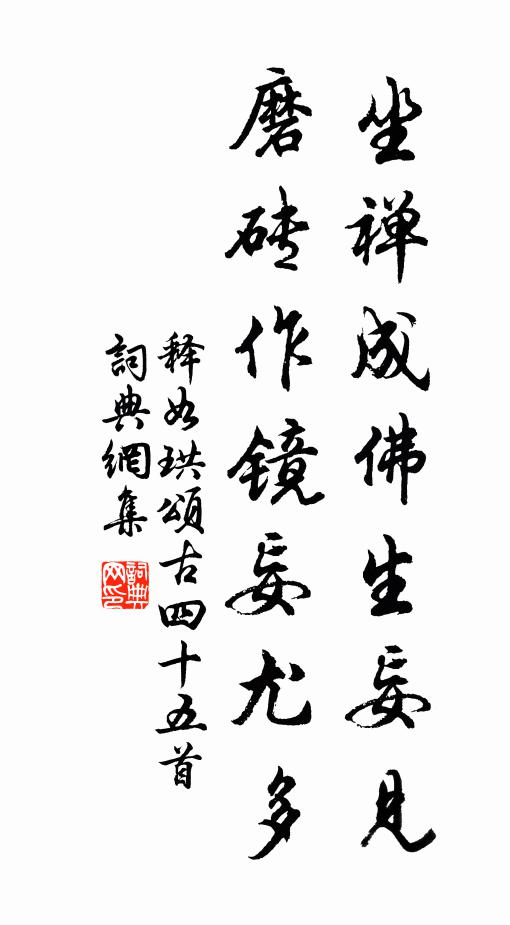 坐禅成佛生妄見
磨砖作镜妄尤多
释如珙頌古四十五首
詞典網集
詞典网印